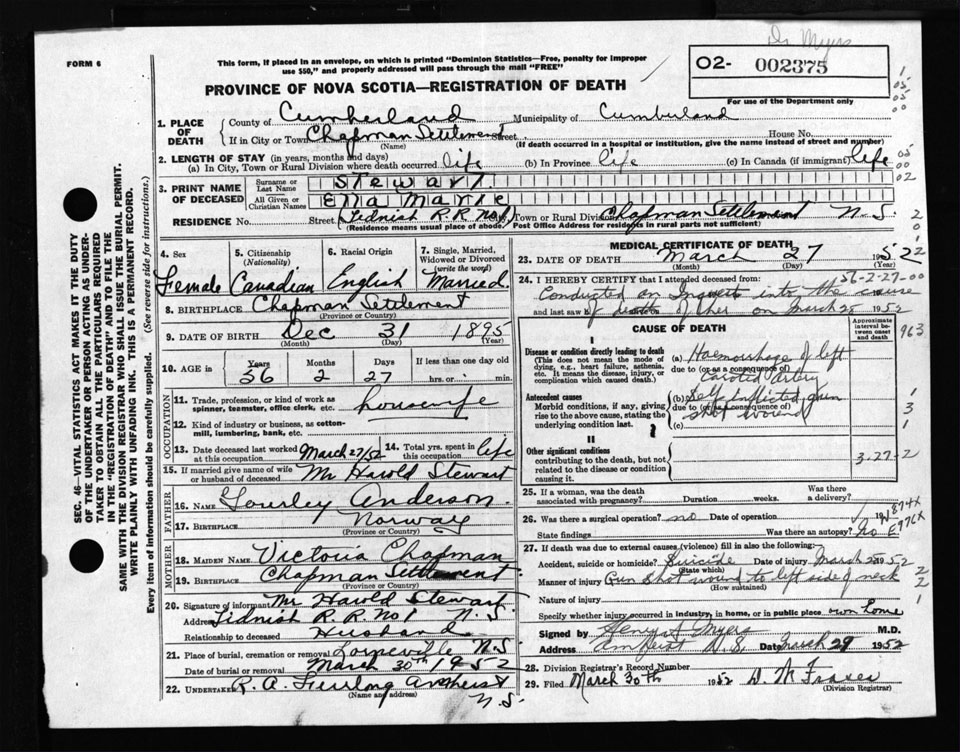 Dr Myers
FORM 6
This form, if placed in an envelope, on which is printed "Dominion Statistics—Free, penalty for improper
use $50," and properly addressed will pass through the mail "FREE"
02- 002375
For use of the Department only
PROVINCE OF NOVA SCOTIA—REGISTRATION OF DEATH
1. PLACE OF DEATH
County of Cumberland Municipality of Cumberland
If in City or Town Chapman Settlement Street House No.
(Name) (If death occurred in a hospital or institution, give the name instead of street and number)
2. LENGTH OF STAY (in years, months and days)
(a) In City, Town or Rural Division where death occurred life (b) In Province life (c) In Canada (if immigrant) life
3. PRINT NAME OF DECEASED
Surname or Last Name Stewart
All Given or Christian Names Ella Marie
RESIDENCE No. Street Tidnish R.R. No 1 Town or Rural Division Chapman Settlement N.S.
(Residence means usual place of abode. Post Office Address for residents in rural parts not sufficient)
4. Sex
Female
5. Citizenship
(Nationality)
Canadian
6. Racial Origin
English
7. Single, Married,
Widowed or Divorced
(write the word)
Married
8. BIRTHPLACE Chapman Settlement
(Province or Country)
9. DATE OF BIRTH Dec 31 1895
(Month) (Day) (Year)
10. AGE in
Years Months Days If less than one day old
56 2 27 hrs. or min.
OCCUPATION
11. Trade, profession, or kind of work as
spinner, teamster, office clerk, etc. housewife
12. Kind of industry or business, as cotton-
mill, lumbering, bank, etc.
13. Date deceased last worked
at this occupation March 27/52
14. Total yrs. spent in
this occupation life
15. If married give name of wife
or husband of deceased Mr Harold Stewart
FATHER
16. Name Anderson
17. Birthplace Norway
(Province or Country)
MOTHER
18. MAIDEN NAME Victoria Chapman
19. BIRTHPLACE Chapman Settlement
(Province or Country)
20. Signature of informant Mr Harold Stewart
Address Tidnish R.R. No 1 N.S
Relationship to deceased Husband
21. Place of burial, cremation or removal Lorneville N.S
Date of burial or removal March 30th 1952
22. UNDERTAKER R. A. Furlong Amherst
(Name and address) N.S.
MEDICAL CERTIFICATE OF DEATH
23. DATE OF DEATH March 27 1952
(Month) (Day) (Year)
24. I HEREBY CERTIFY that I attended deceased from: 56-2-27-00
Conducted an Inquest into the cause
and last saw of death of her on March 28 1952
CAUSE OF DEATH
Approximate
interval between
onset and
death
963
I
Disease or condition directly leading to death
(This does not mean the mode of
dying, e.g., heart failure, asthenia,
etc. It means the disease, injury, or
complication which caused death.)
(a) Haemorrhage of left
due to (or as a consequence of)
Carotid artery
Antecedent causes
Morbid conditions, if any, giving
rise to the above cause, stating the
underlying condition last.
(b) Self inflicted gun
due to (or as a consequence of)
shot wound
(c)
II
Other significant conditions
contributing to the death, but not
related to the disease or condition
causing it.
3-27-2
25. If a woman, was the death
associated with pregnancy? Duration weeks. Was there
a delivery?
26. Was there a surgical operation? no Date of operation 19
State findings Was there an autopsy? No
N874X
E976X
27. If death was due to external causes (violence) fill in also the following:
Accident, suicide or homicide? Suicide Date of injury March 27 1952
(State which)
Manner of injury Gun shot wound to left side of neck
(How sustained)
Nature of injury
Specify whether injury occurred in industry, in home, or in public place own home
Signed by Henry A Myers M.D.
Amherst N.S. Date March 29 1952
28. Division Registrar's Record Number
29. Filed March 30th 1952 D. M Fraser
(Division Registrar)
SEC. 46—VITAL STATISTICS ACT MAKES IT THE DUTY
OF THE UNDERTAKER OR PERSON ACTING AS UNDER-
TAKER TO OBTAIN ALL THE PARTICULARS REQUIRED
IN THE "REGISTRATION OF DEATH" AND TO FILE THE
SAME WITH THE DIVISION REGISTRAR WHO SHALL ISSUE THE BURIAL PERMIT.
WRITE PLAINLY WITH UNFADING INK. THIS IS A PERMANENT RECORD.
Every item of information should be carefully supplied. (See reverse side for instructions.)